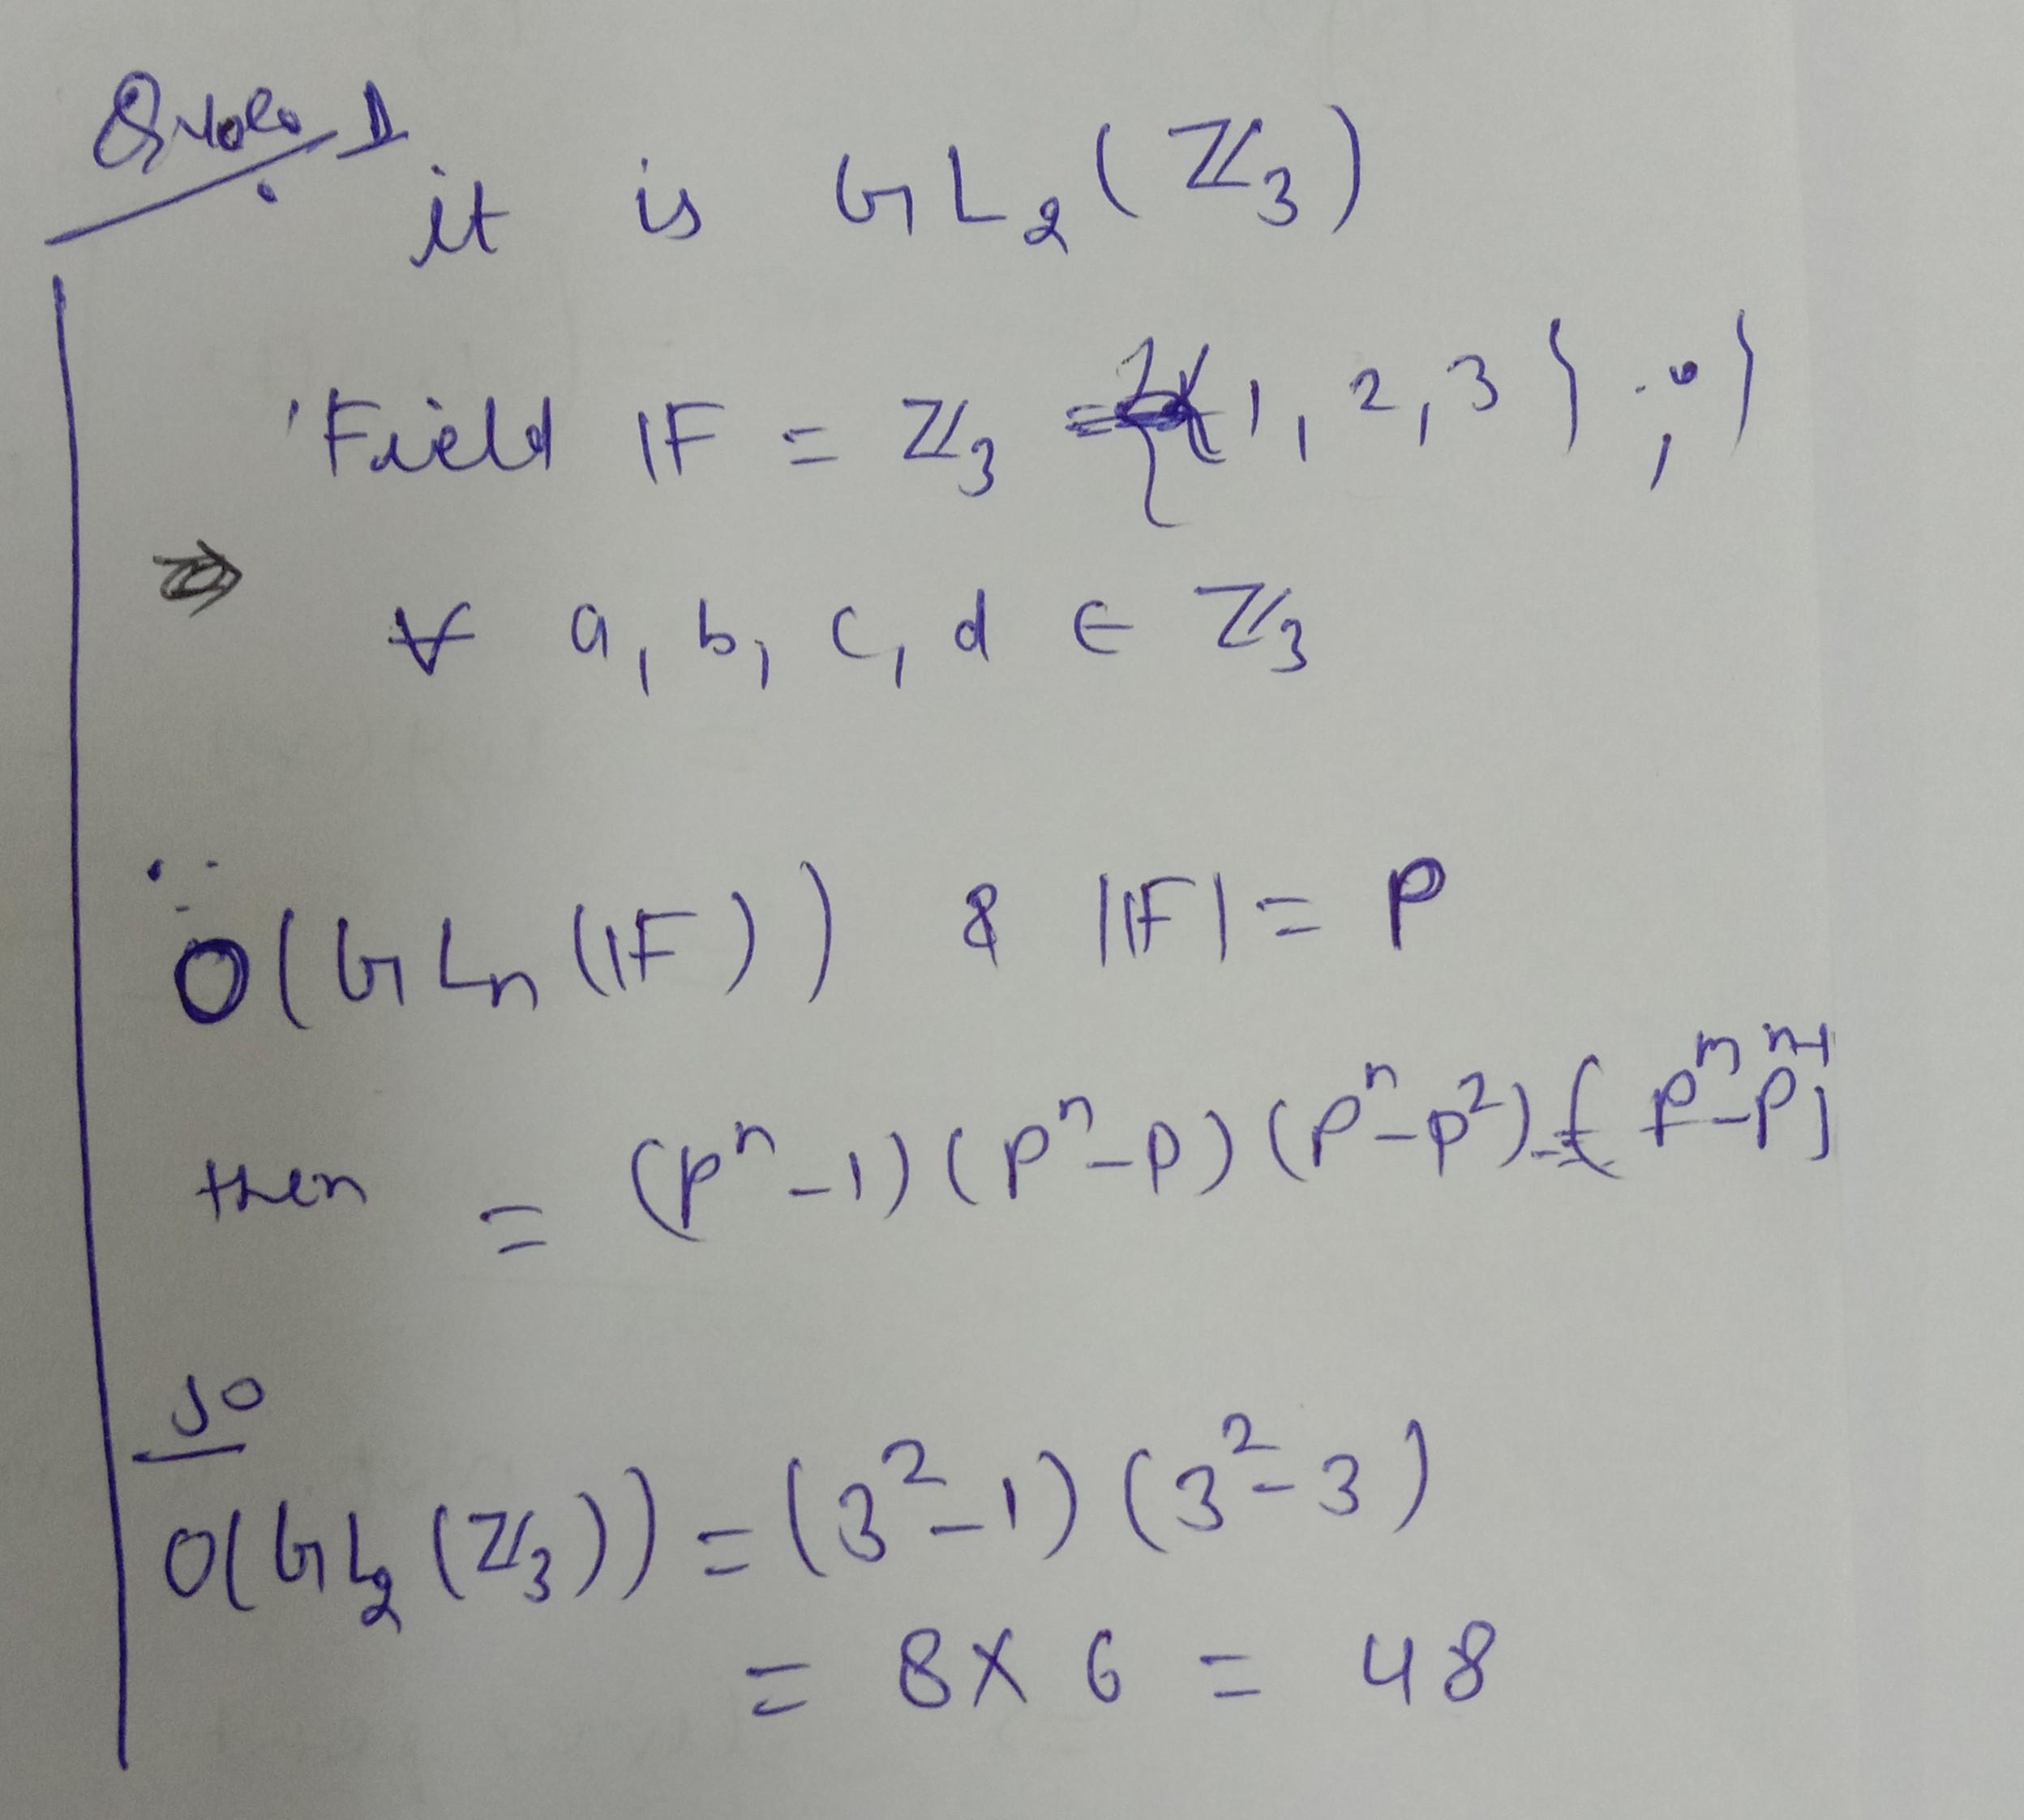 Ques. 1
it is GL₂(ℤ₃)
Field 𝔽 = ℤ₃ = {1, 2, 3} ;
∀ a, b, c, d ∈ ℤ₃
∵ O(GLₙ(𝔽)) & |𝔽| = P
then = (pⁿ-1)(pⁿ-p)(pⁿ-p²)--(pⁿ-pⁿ⁻¹)
so
O(GL₂(ℤ₃)) = (3²-1)(3²-3)
= 8 × 6 = 48